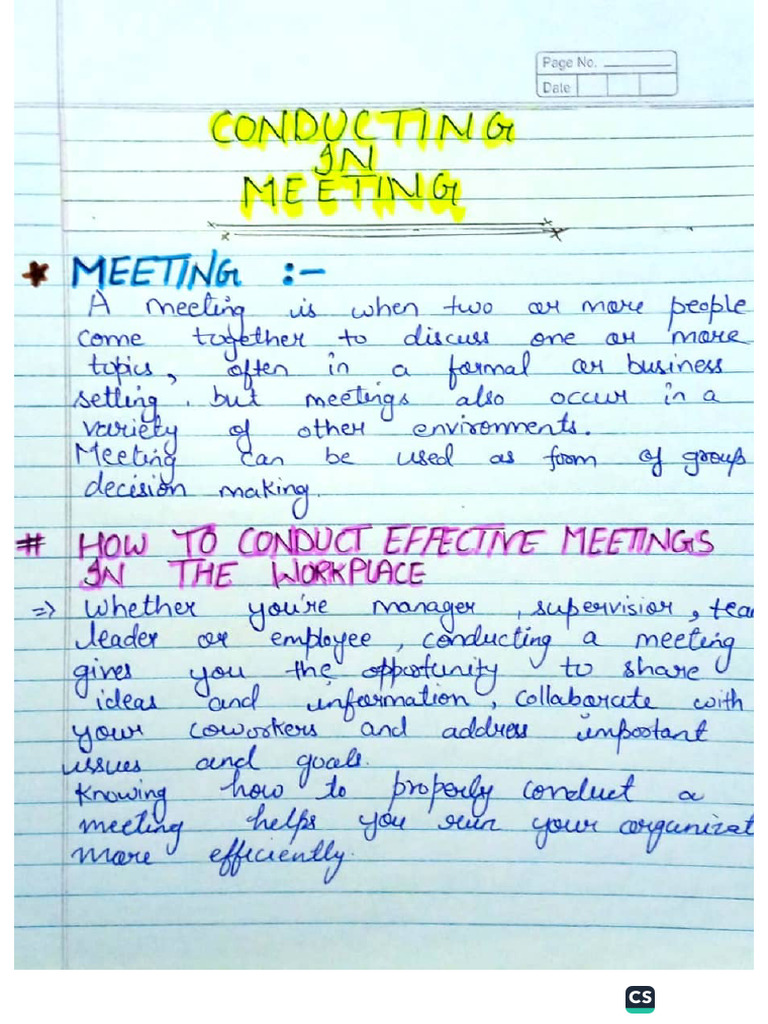 Page No.
Date
CONDUCTING
IN
MEETING
* MEETING :-
A meeting is when two or more people
come together to discuss one or more
topics, often in a formal or business
setting, but meetings also occur in a
variety of other environments.
Meeting can be used as form of group
decision making.
# HOW TO CONDUCT EFFECTIVE MEETINGS
IN THE WORKPLACE
=> Whether you're manager, supervisior, tea
leader or employee, conducting a meeting
gives you the opportunity to share
ideas and information, collaborate with
your coworkers and address important
issues and goals.
Knowing how to properly conduct a
meeting helps you run your organizat
more efficiently.
CS